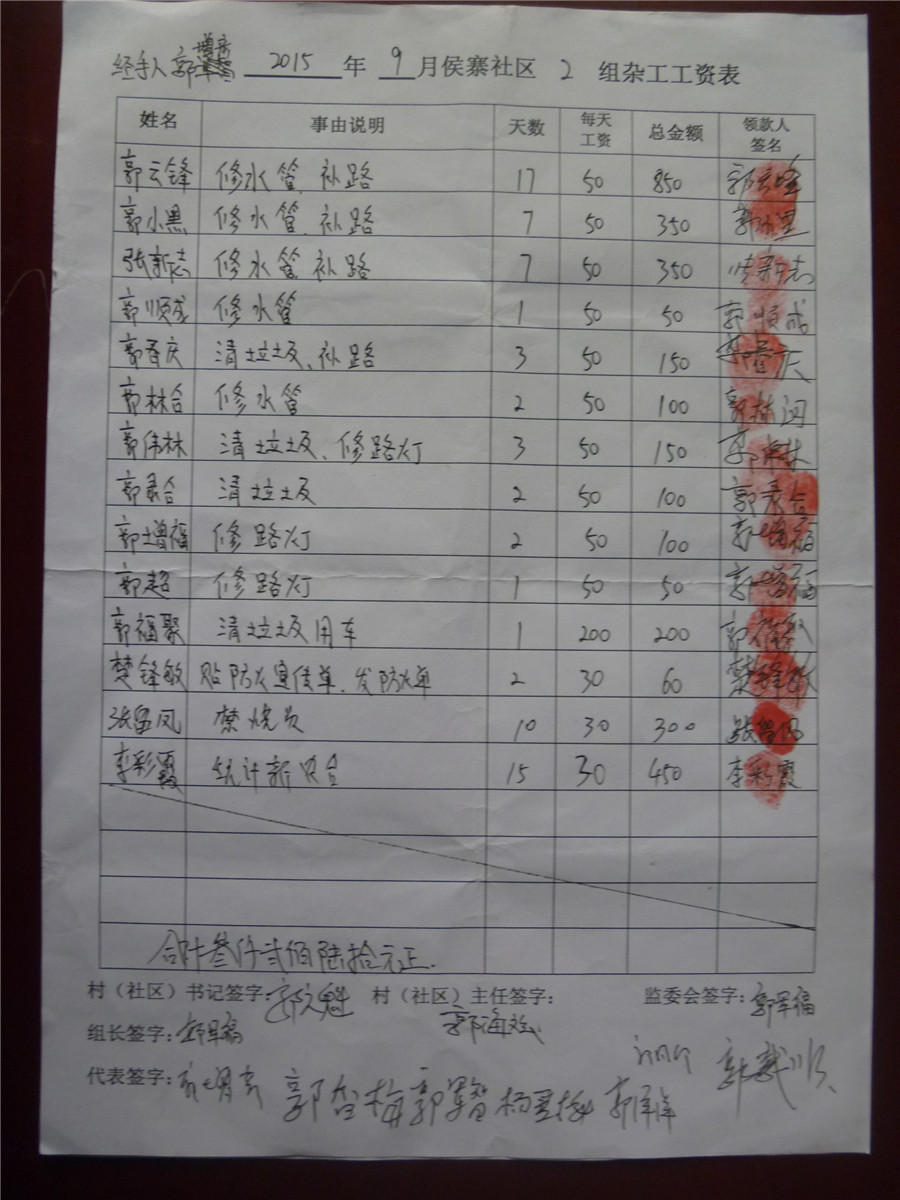 经手人 郭增福 2015 年 9 月侯寨社区 2 组杂工工资表
姓名 事由说明 天数 每天工资 总金额 领款人签名
郭云锋 修水管、补路 17 50 850 郭云峰
郭小黑 修水管、补路 7 50 350 郭小黑
张新志 修水管、补路 7 50 350 张新志
郭顺成 修水管 1 50 50 郭顺成
郭春庆 清垃圾、补路 3 50 150 郭春庆
郭林合 修水管 2 50 100 郭林
郭伟林 清垃圾、修路灯 3 50 150 郭伟林
郭录合 清垃圾 2 50 100 郭录合
郭增福 修路灯 2 50 100 郭增福
郭超 修路灯 1 50 50 郭增福
郭福聚 清垃圾用车 1 200 200 郭福聚
楚锋敏 贴防火宣传单、发防火单 2 30 60 楚锋敏
张留凤 禁烧员 10 30 300 张留凤
李彩霞 统计新农合 15 30 450 李彩霞
合计叁仟贰佰陆拾元正.
村（社区）书记签字: 郭文魁 村（社区）主任签字: 郭海 监委会签字: 郭军福
组长签字: 郭军福
代表签字: 郭 梅 郭军智 杨